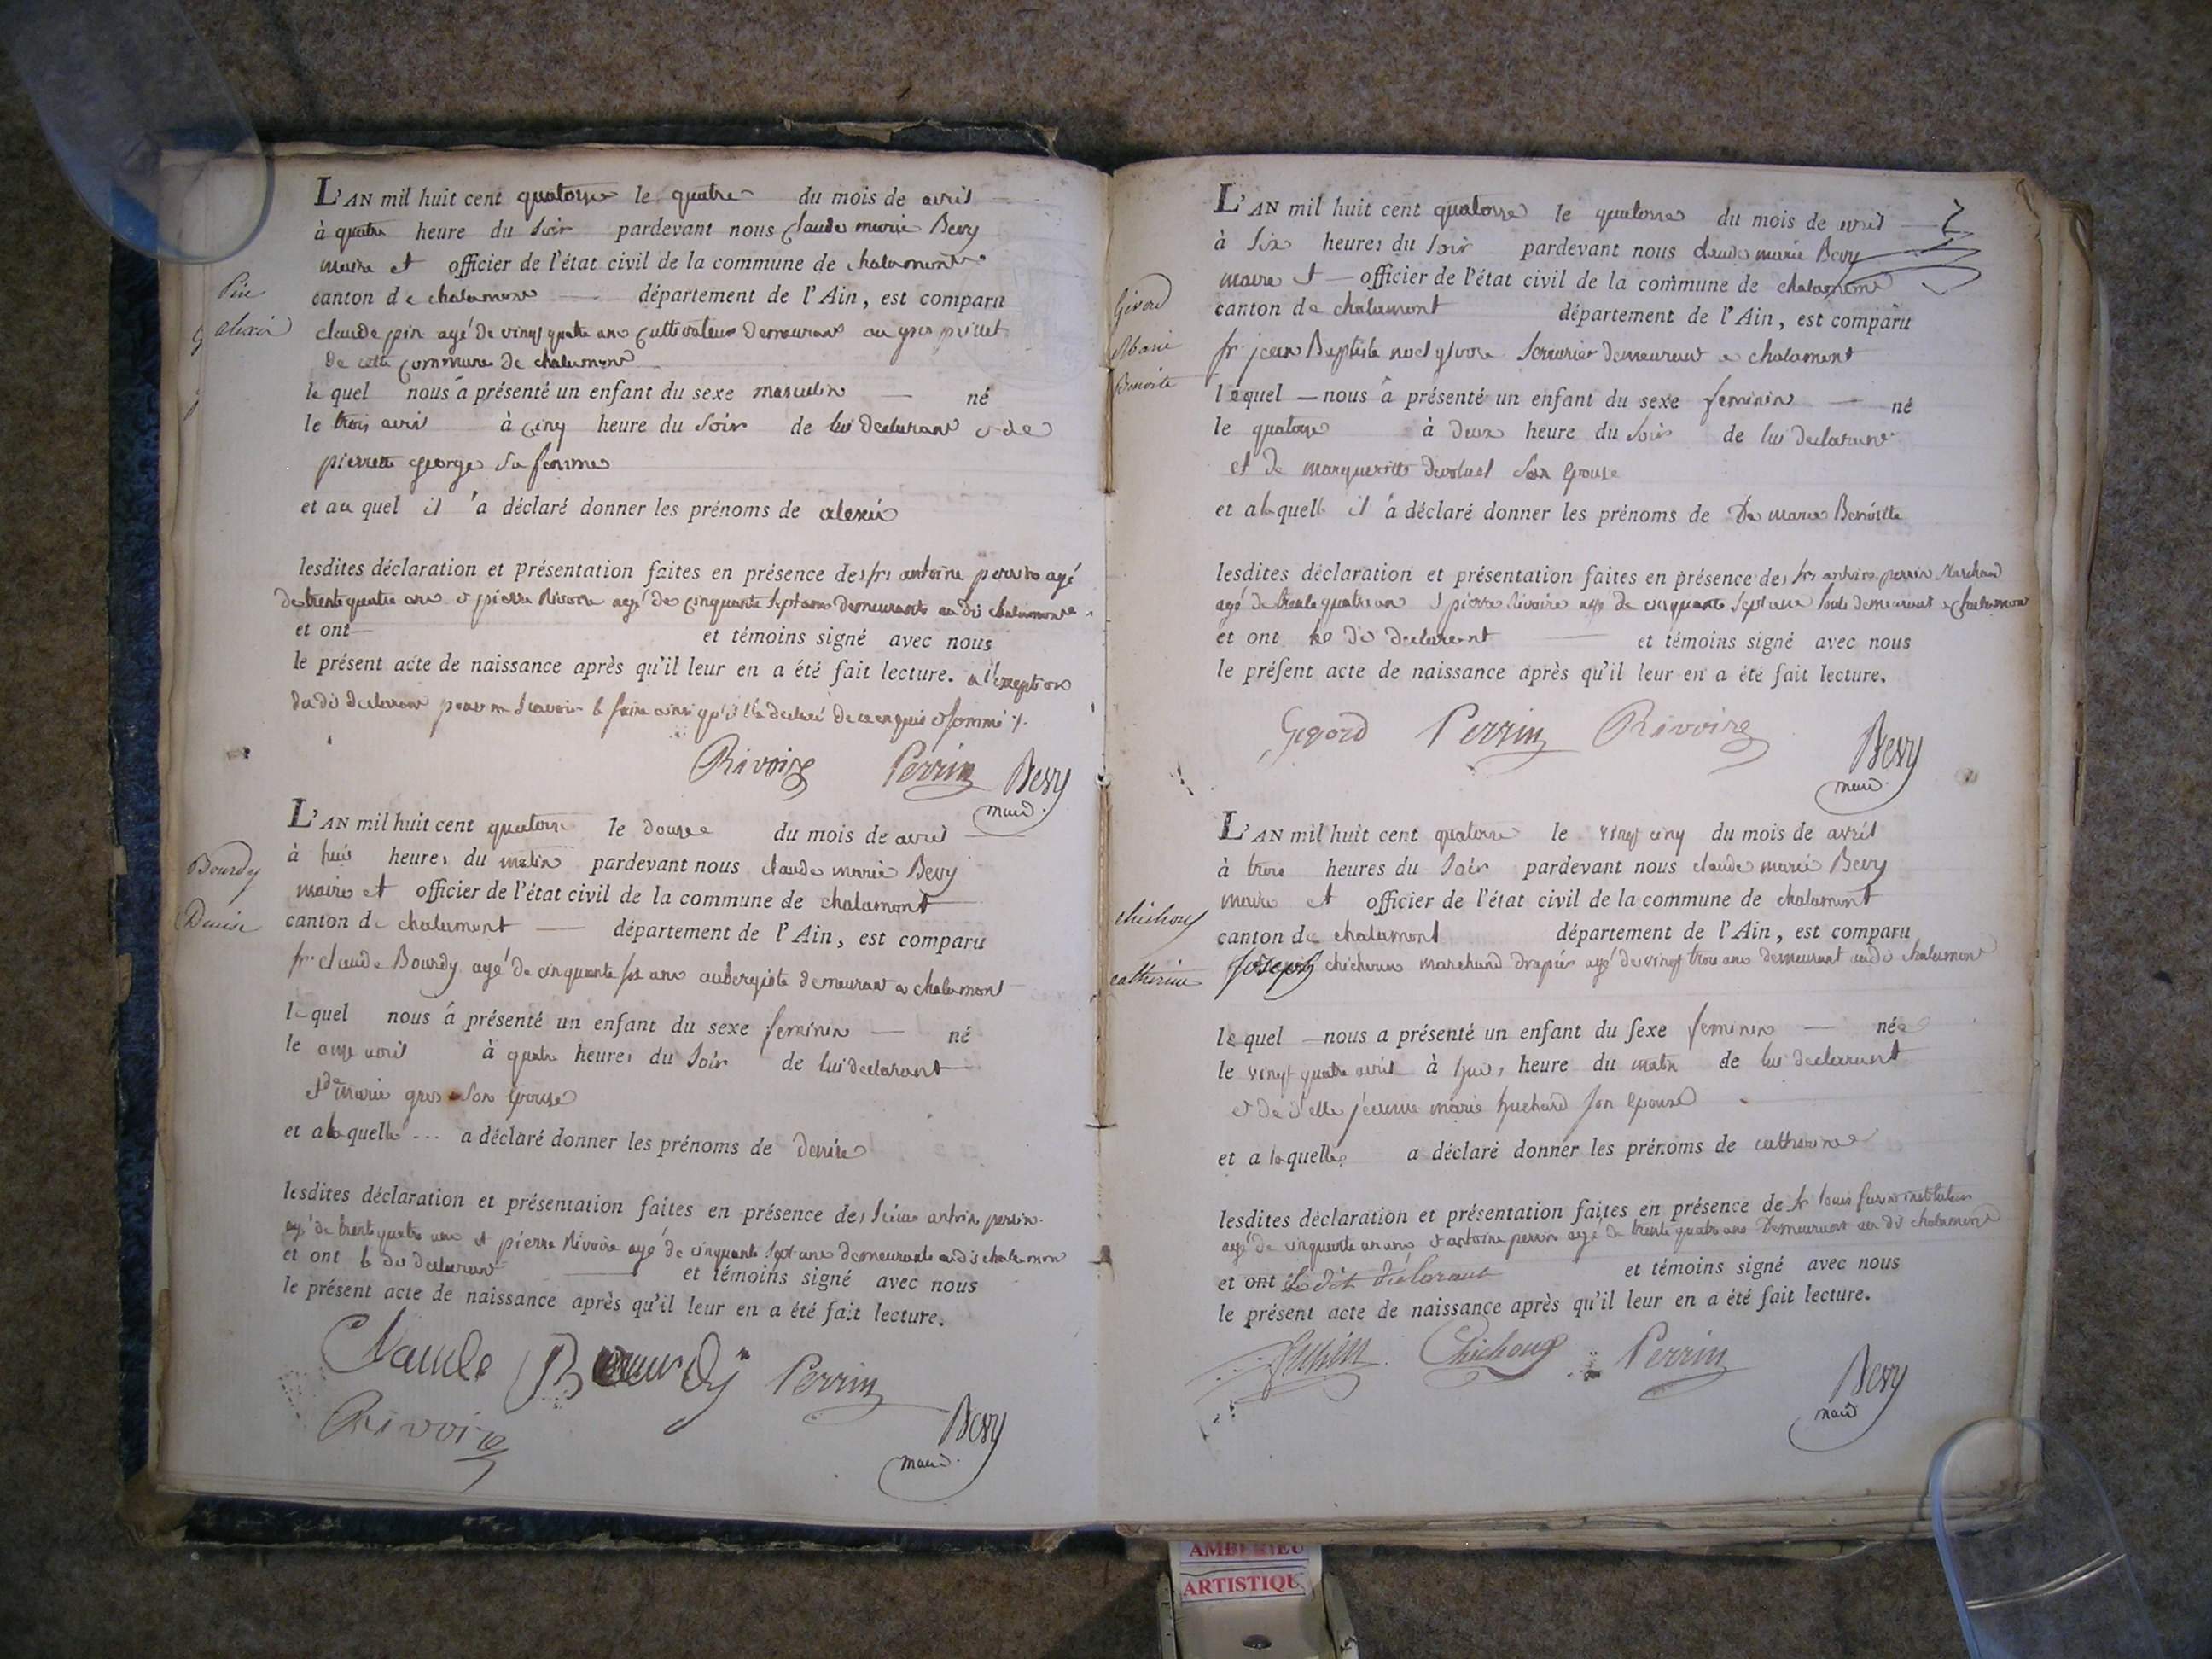 L'AN mil huit cent quatorze le quatre du mois de avril
à quatre heure du soir pardevant nous claude marie Bevy
maire et officier de l'état civil de la commune de chalamont
Pin
canton de chalamont département de l'Ain, est comparu
alexis
claude pin agé de vingt quatre ans cultivateur demeurant au
de cette commune de chalamont
le quel nous a présenté un enfant du sexe masculin né
le trois avril à cinq heure du soir de lui declarant & de
pierrette george sa femme
et au quel il a déclaré donner les prénoms de alexis
lesdites déclaration et présentation faites en présence des srs antoine perrin agé
de trente quatre ans & pierre Rivoire agé de cinquante sept ans demeurants au dit chalamont
et ont et témoins signé avec nous
le présent acte de naissance après qu'il leur en a été fait lecture. a l'exception
du dit declarant pour ne scavoir le faire ainsi qu'il l'a declaré de ce enquis & sommé ./.
Rivoire Perrin Bevy
maire
L'AN mil huit cent quatorze le douze du mois de avril
à huit heures du matin pardevant nous claude marie Bevy
Bourdy
maire et officier de l'état civil de la commune de chalamont
Denise
canton de chalamont département de l'Ain, est comparu
sr. claude Bourdy agé de cinquante six ans aubergiste demeurant a chalamont
lequel nous a présenté un enfant du sexe feminin né
le onze avril à quatre heures du soir de lui declarant
et de marie gros son epouse
et a la quelle ... a déclaré donner les prénoms de denise
lesdites déclaration et présentation faites en présence des sieurs antoine perrin
agé de trente quatre ans et pierre Rivoire agé de cinquante sept ans demeurants au dit chalamont
et ont le dit declarant et témoins signé avec nous
le présent acte de naissance après qu'il leur en a été fait lecture.
Claude Bourdy Perrin
Rivoire Bevy
maire
L'AN mil huit cent quatorze le quatorze du mois de avril
à six heures du soir pardevant nous claude marie Bevy
maire et officier de l'état civil de la commune de chalamont
Givord
canton de chalamont département de l'Ain, est comparu
Marie
sr. jean Baptiste noel givord serrurier demeurant a chalamont
Benoite
lequel nous a présenté un enfant du sexe feminin né
le quatorze à deux heure du soir de lui declarant
et de margueritte son epouse
et a la quelle il a déclaré donner les prénoms de De marie Benoitte
lesdites déclaration et présentation faites en présence des srs antoine perrin Marchand
agé de trente quatre ans & pierre Rivoire agé de cinquante sept ans tous demeurant a chalamont
et ont le dit declarant et témoins signé avec nous
le présent acte de naissance après qu'il leur en a été fait lecture.
Givord Perrin Rivoire Bevy
maire
L'AN mil huit cent quatorze le vingt cinq du mois de avril
à trois heures du soir pardevant nous claude marie Bevy
maire et officier de l'état civil de la commune de chalamont
chichoux
canton de chalamont département de l'Ain, est comparu
catherine
joseph chichoux marchand drapier agé de vingt trois ans demeurant au dit chalamont
lequel nous a présenté un enfant du sexe feminin née
le vingt quatre avril à huit heure du matin de lui declarant
& de delle jeanne marie huchard son epouse
et a laquelle a déclaré donner les prénoms de catherine
lesdites déclaration et présentation faites en présence de sr louis instituteur
agé de cinquante un ans & antoine perrin agé de trente quatre ans demeurant au dit chalamont
et ont Le dit déclarant et témoins signé avec nous
le présent acte de naissance après qu'il leur en a été fait lecture.
Chichoux Perrin Bevy
maire
AMBERIEU
ARTISTIQU